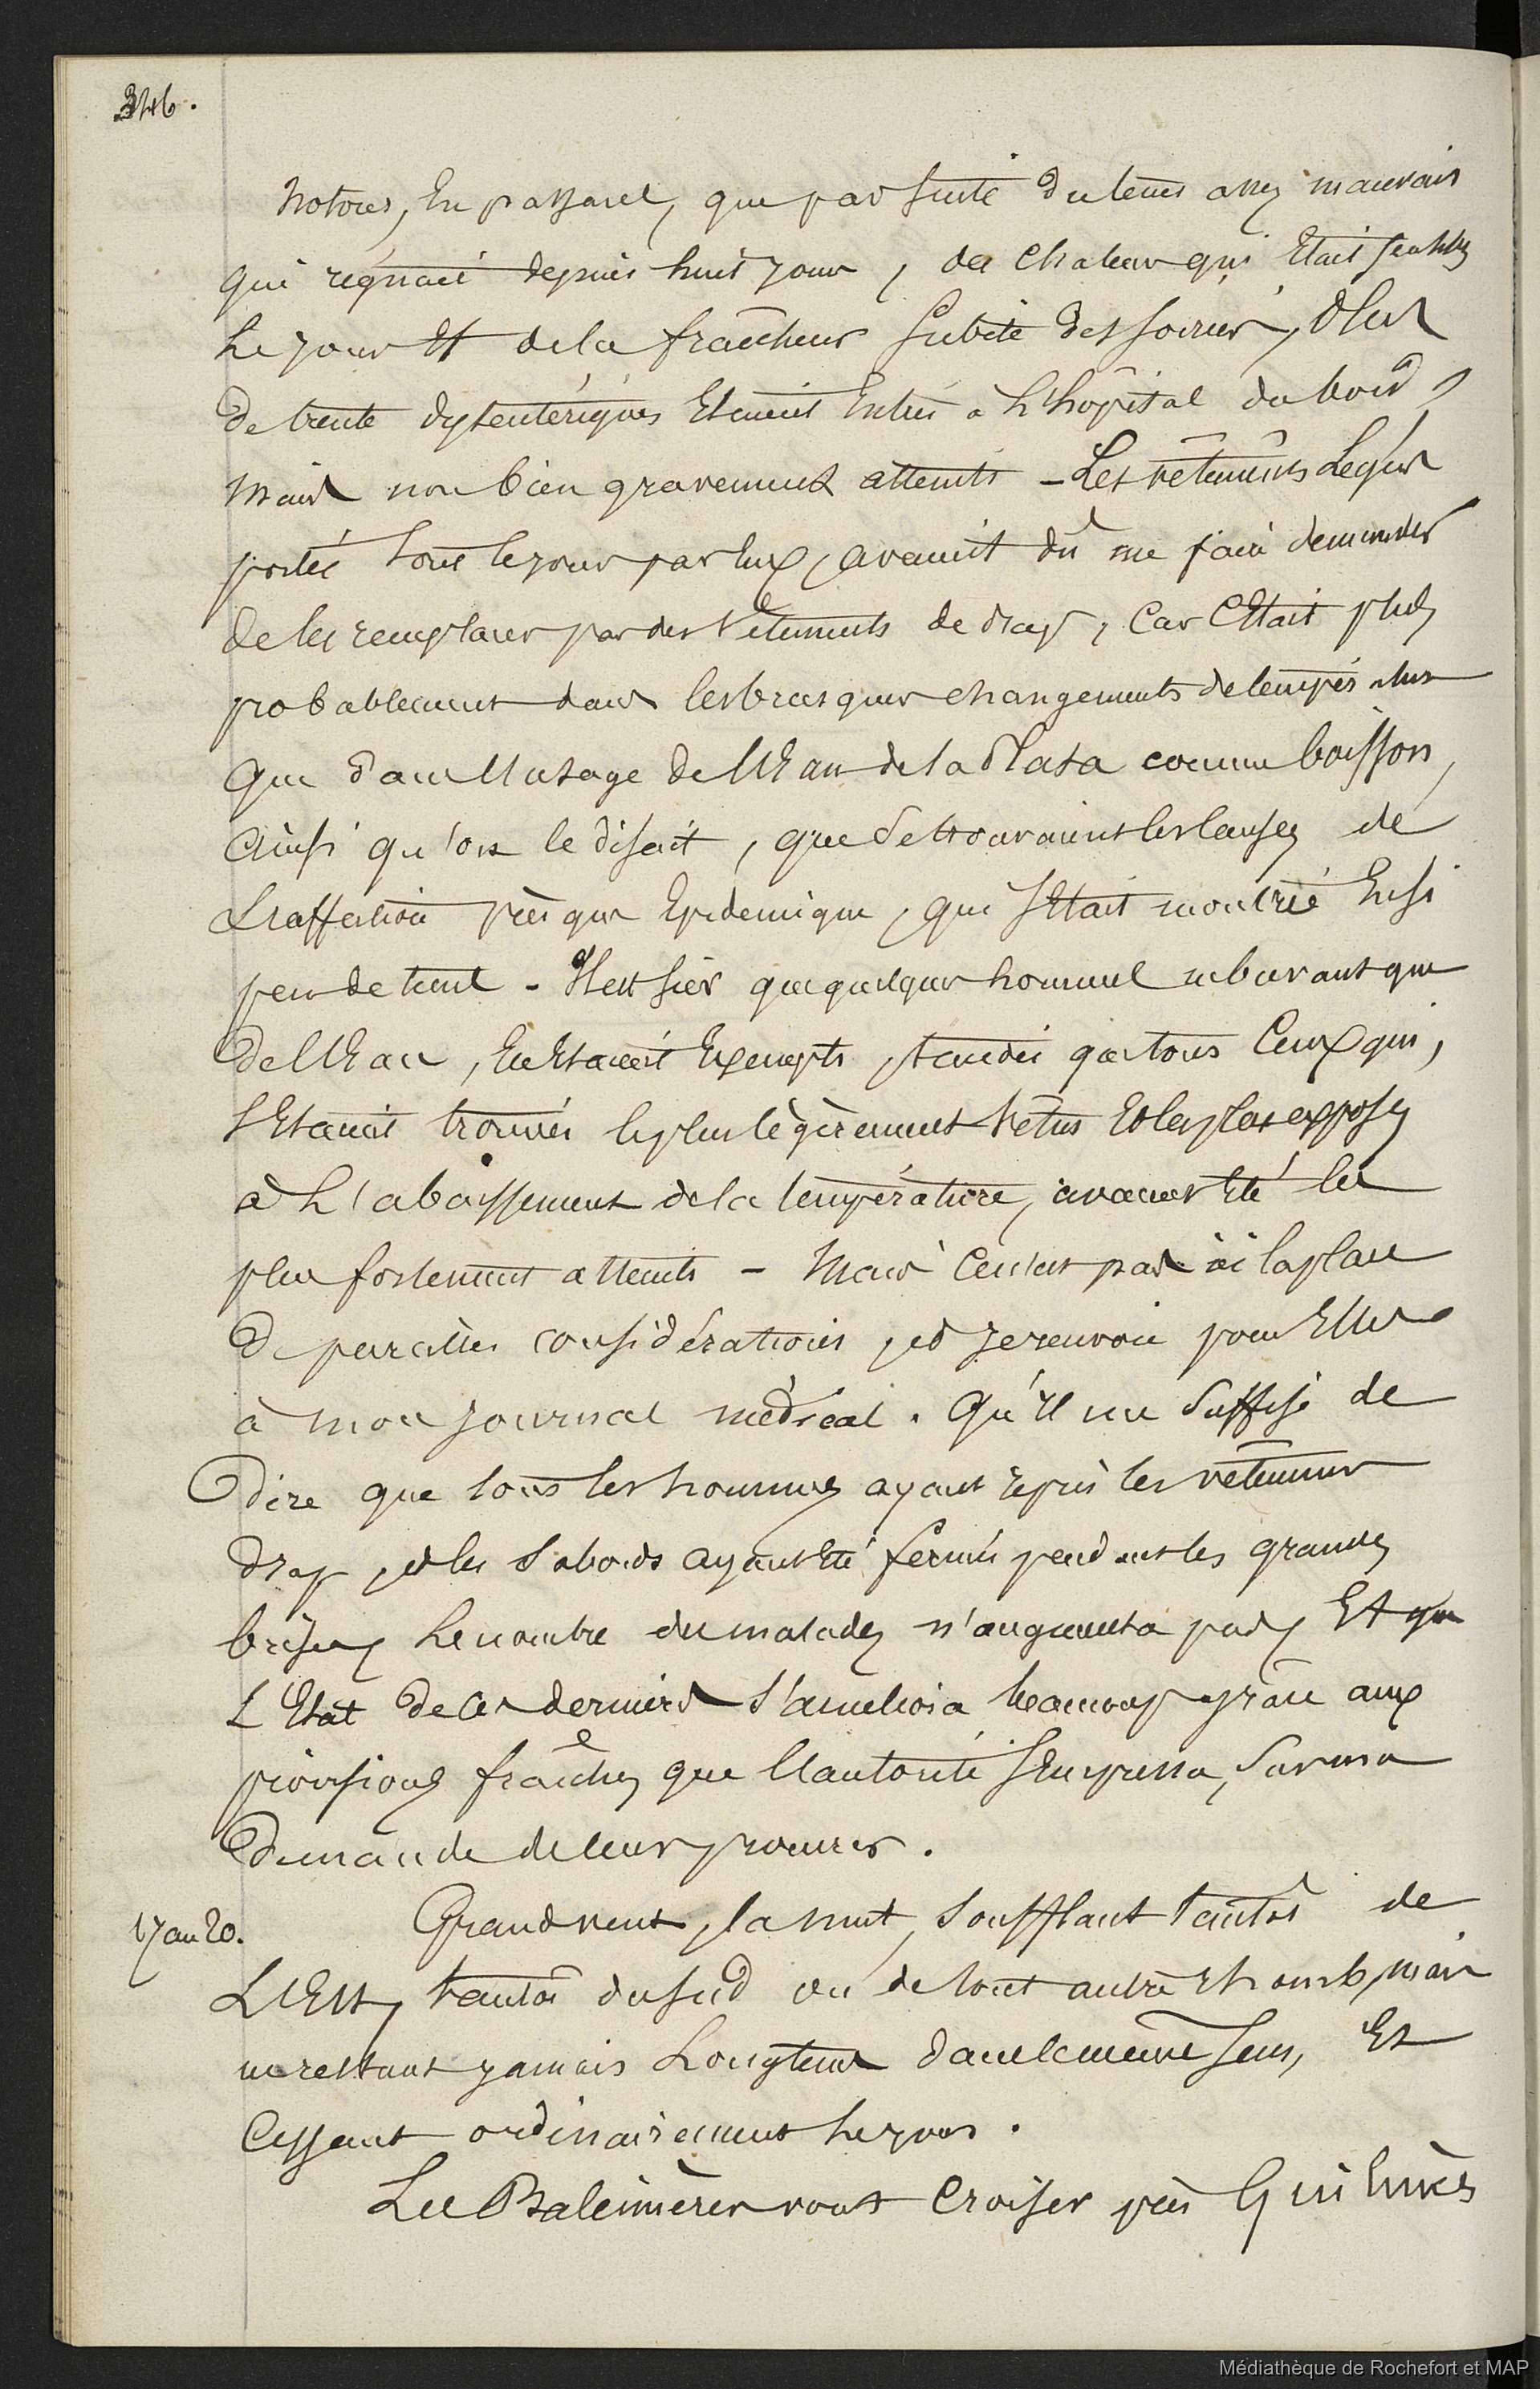 346.
Notons, En passant, que par suite du tems assez mauvais
qui régnait depuis huit jours, de la Chaleur qui Etait sensible
Le jour Et de la fraîcheur subite des soirées, Plus
De trente dyssentériques Etaient Entrés à L'hôpital du bord,
Mais non bien gravement atteints – Les vêtements Légers
portés tout le jour par Eux, avaient dû me faire demander
de les remplacer par des Vêtements de drap, Car C'Etait plus
probablement dans les brusques changements de température
que dans l'usage de l'Eau de la Plata comme boisson,
Ainsi qu'on le disait, que se trouvaient les Causes de
L'affection presque Epidemique, qui s'Etait montrée En si
peu de tems – Il est sûr que quelques hommes ne buvant que
De l'Eau, En Etaient Exempts, tandis que tous Ceux qui,
s'Etaient trouvés le plus légèrement Vêtus Et les plus exposés
à L'abaissement de la température, avaient Eté les
plus fortement atteints – Mais Ce n'est pas ici la place
De pareilles considérations, et je renvoie pour Elles
à mon journal médical. Qu'Il me suffise de
Dire que tous les hommes ayant repris les vêtements
drap, et les sabords ayant Eté fermés pendant les grandes
brises, Le nombre des malades n'augmenta pas, Et que
L'Etat De Ces derniers s'améliora beaucoup grâce aux
provisions fraîches que l'autorité s'Empressa, sur ma
Demande de leur procurer.
17 au 20. Grand vent, la nuit, soufflant tantôt de
L'Est, tantôt du sud ou de tout autre rhomb, mais
ne restant jamais Longtems dans le même sens, Et
Cessant ordinairement Le jour.
Les Baleinières vont Croiser près Quilmès
Médiathèque de Rochefort et MAP